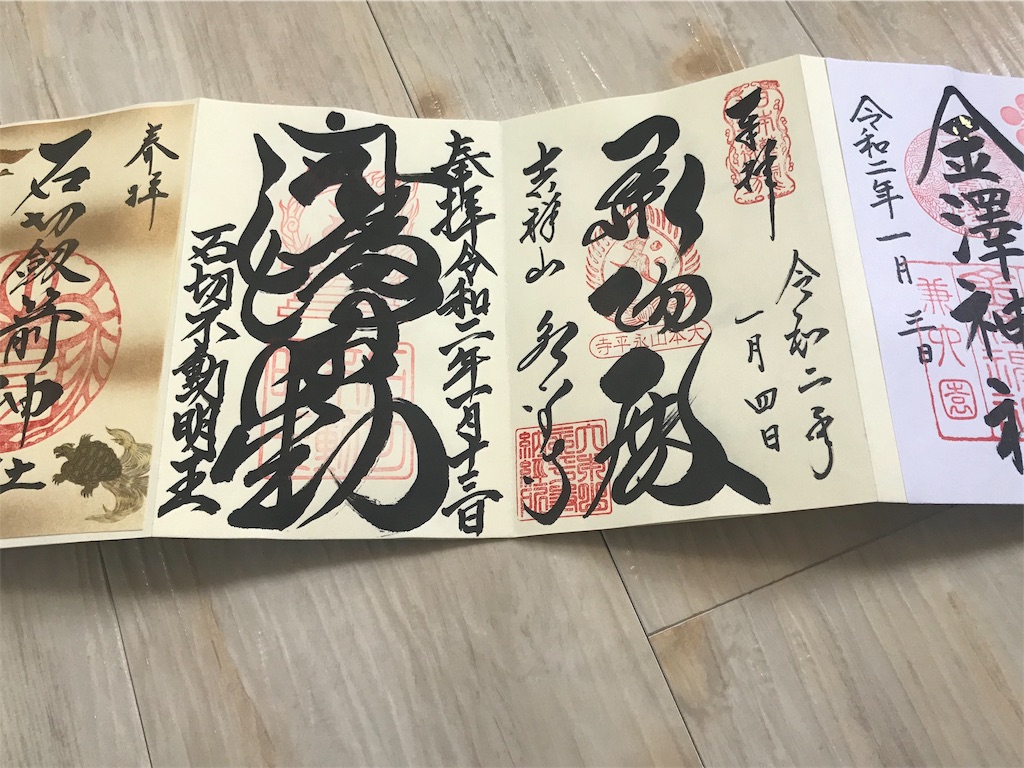 金澤神社
兼六園
令和二年一月三日
奉拝
令和二年
一月四日
承陽殿
大本山永平寺
吉祥山 永平寺
奉拝令和二年一月十三日
石切不動明王
奉拝
石切劔箭神